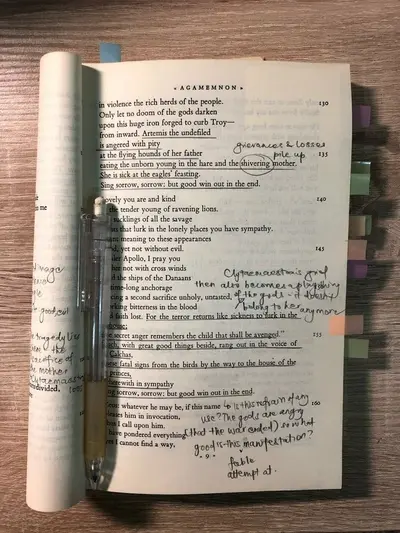 « AGAMEMNON »
in violence the rich herds of the people. 130
Only let no doom of the gods darken
upon this huge iron forged to curb Troy—
from inward. Artemis the undefiled
is angered with pity
grievances & losses pile up
at the flying hounds of her father 135
eating the unborn young in the hare and the shivering mother.
She is sick at the eagles' feasting.
Sing sorrow, sorrow: but good win out in the end.
ovely you are and kind 140
the tender young of ravening lions.
sucklings of all the savage
that lurk in the lonely places you have sympathy.
meaning to these appearances
d, yet not without evil. 145
aler Apollo, I pray you
not with cross winds
the ships of the Danaans
time-long anchorage
a second sacrifice unholy, untasted,
Clytemnestra's grief
then also becomes a plaything
of the gods - it doesn't
belong to her anymore
king bitterness in the blood
faith lost. For the terror returns like sickness to lurk in the
house;
secret anger remembers the child that shall be avenged." 155
with great good things beside, rang out in the voice of
Calchas,
fatal signs from the birds by the way to the house of the
princes,
erewith in sympathy
sing sorrow, sorrow: but good win out in the end.
whatever he may be, if this name 160
him in invocation,
I call upon him.
have pondered everything
I cannot find a way,
is this refrain of any
use? The gods are angry
(that the war ended) so what
good is this manifestation?
fable
attempt at.
• 9 •
image
good out
tragedy lies
the mother
divided,